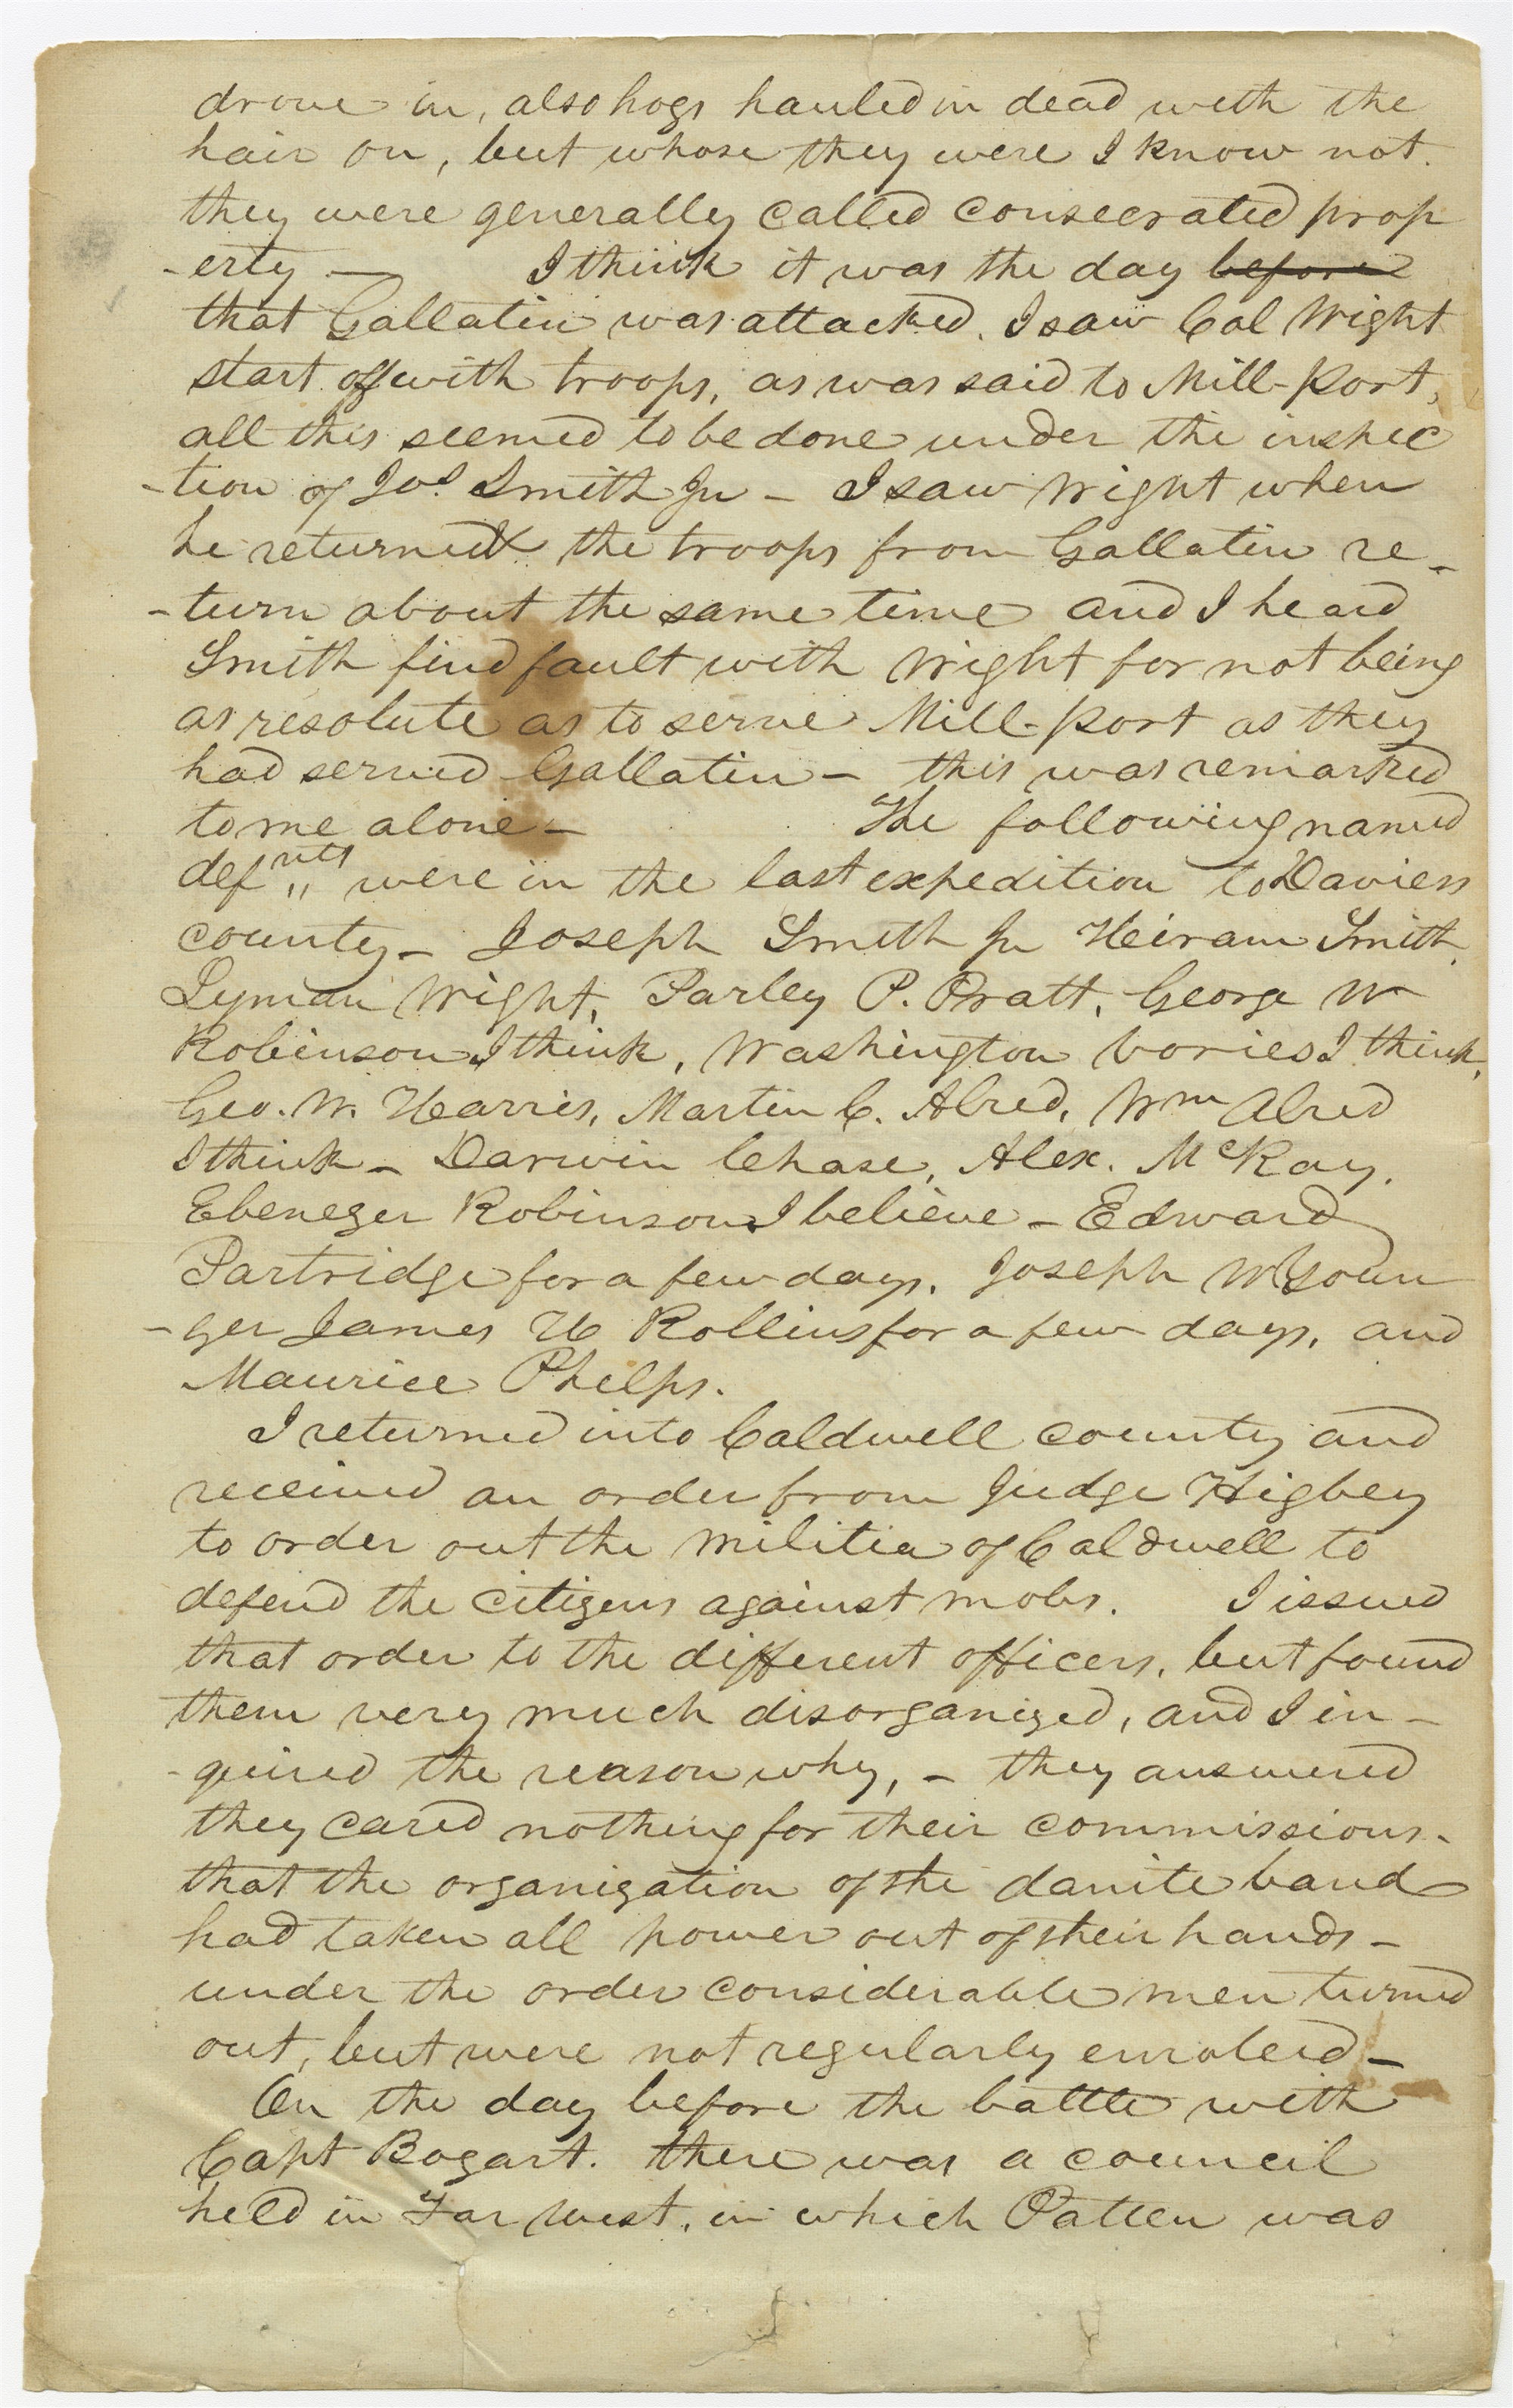 drove in, also hogs hauled in dead with the
hair on, but whose they were I know not.
they were generally called consecrated prop
-erty — I think it was the day ~~before~~
that Gallatin was attacked. I saw Col Wight
start off with troops, as was said to Mill-Port,
all this seemed to be done under the inspec
-tion of Jos. Smith Jr — I saw Wight when
he returned & the troops from Gallatin re-
-turn about the same time and I heard
Smith find fault with Wight for not being
as resolute as to serve Mill-Port as they
had served Gallatin — this was remarked
to me alone — The following named
defnts were in the last expedition to Daviess
county — Joseph Smith Jr Heiram Smith,
Lyman Wight, Parley P. Pratt, George W
Robinson I think, Washington Vories I think,
Geo. W. Harris, Martin C. Alred, Wm Alred
I think — Darwin Chase, Alex. McRay,
Ebenezer Robinson I believe — Edward
Partridge for a few days, Joseph W Youn
-ger James H Rollins for a few days, and
Maurice Phelps.
I returned into Caldwell county and
received an order from Judge Higbey
to order out the militia of Caldwell to
defend the citizens against mobs. I issued
that order to the different officers, but found
them very much disorganized, and I in-
-quired the reason why, — they answered
they cared nothing for their commissions.
that the organization of the danite band
had taken all power out of their hands —
under the order considerable men turned
out, but were not regularly enroleed —
On the day before the battle with
Capt Bogart. there was a council
held in Far West, in which Patten was